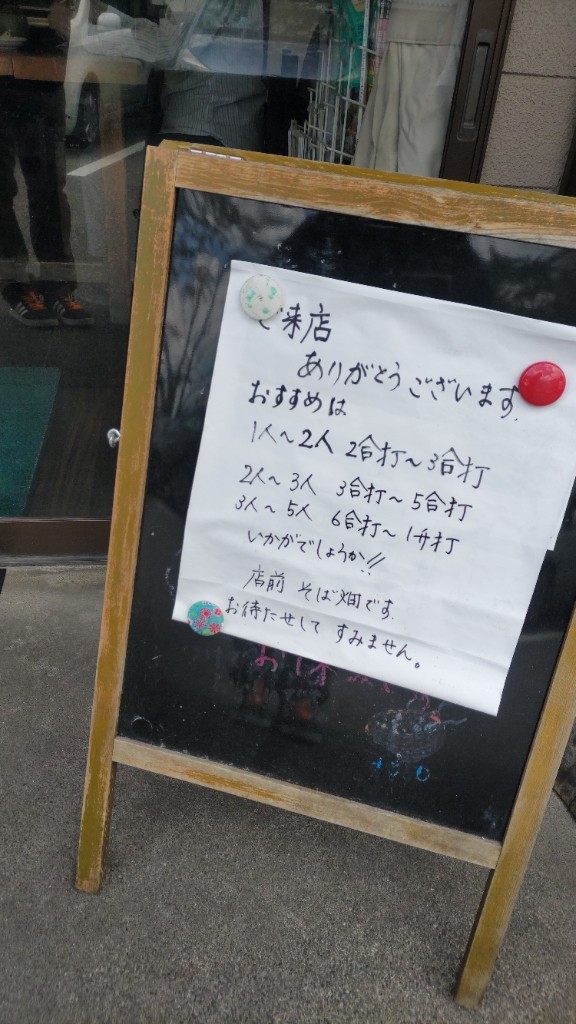 ご来店
ありがとうございます.
おすすめは
1人～2人 2合打～3合打
2人～3人 3合打～5合打
3人～5人 6合打～1升打
いかがでしょうか!!
店前 そば畑です.
お待たせして すみません。